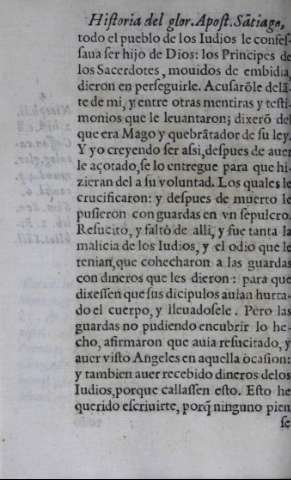 Historia del glor. Apost. Sãtiago,
todo el pueblo de los Iudios le confes-
saua ser hijo de Dios: los Principes de
los Sacerdotes, mouidos de embidia,
dieron en perseguirle. Acusarõle delã-
te de mi, y entre otras mentiras y testi-
monios que le leuantaron; dixerõ del
que era Mago y quebrãtador de su ley.
Y yo creyendo ser assi, despues de auer
le açotado, se lo entregue para que hi-
zieran del a su voluntad. Los quales le
crucificaron: y despues de muerto le
pusieron con guardas en vn sepulcro.
Resucito, y faltó de alli, y fue tanta la
malicia de los Iudios, y el odio que le
tenian, que cohecharon a las guardas
con dineros que les dieron: para que
dixessen que sus dicipulos auian hurta-
do el cuerpo, y lleuadosele. Pero las
guardas no pudiendo encubrir lo he-
cho, afirmaron que auia resucitado, y
auer visto Angeles en aquella ocasion:
y tambien auer recebido dineros delos
Iudios, porque callassen esto. Esto he
querido escriuirte, porq̃ ninguno pien
se